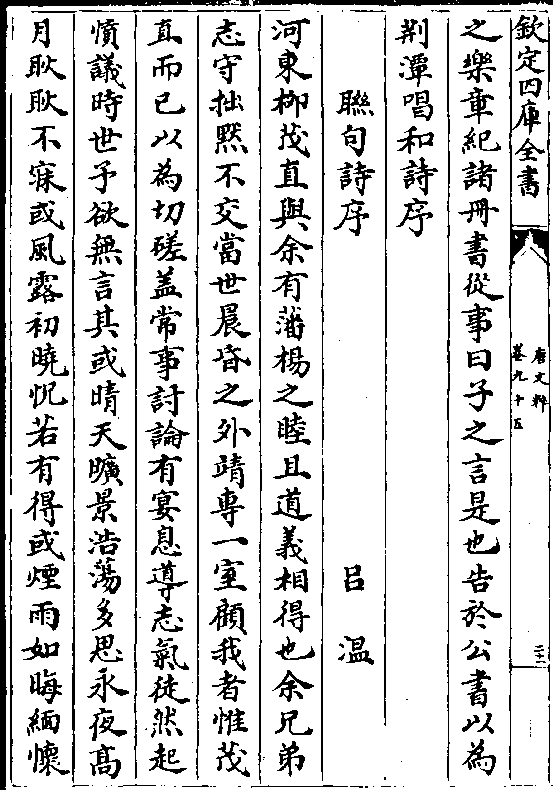 欽定四庫全書
唐文粹
卷九十五
之樂章紀諸冊書從事曰子之言是也告於公書以為
荆潭唱和詩序
聯句詩序 吕溫
河東栁茂直與余有藩楊之睦且道義相得也余兄弟
志守拙黙不交當世晨昏之外靖專一室顧我者惟茂
直而已以為切磋盖常事討論有宴息導志氣徒然起
憤議時世予欲無言其或晴天曠景浩蕩多思永夜髙
月耿耿不寐或風露初曉怳若有得或煙雨如晦緬懷